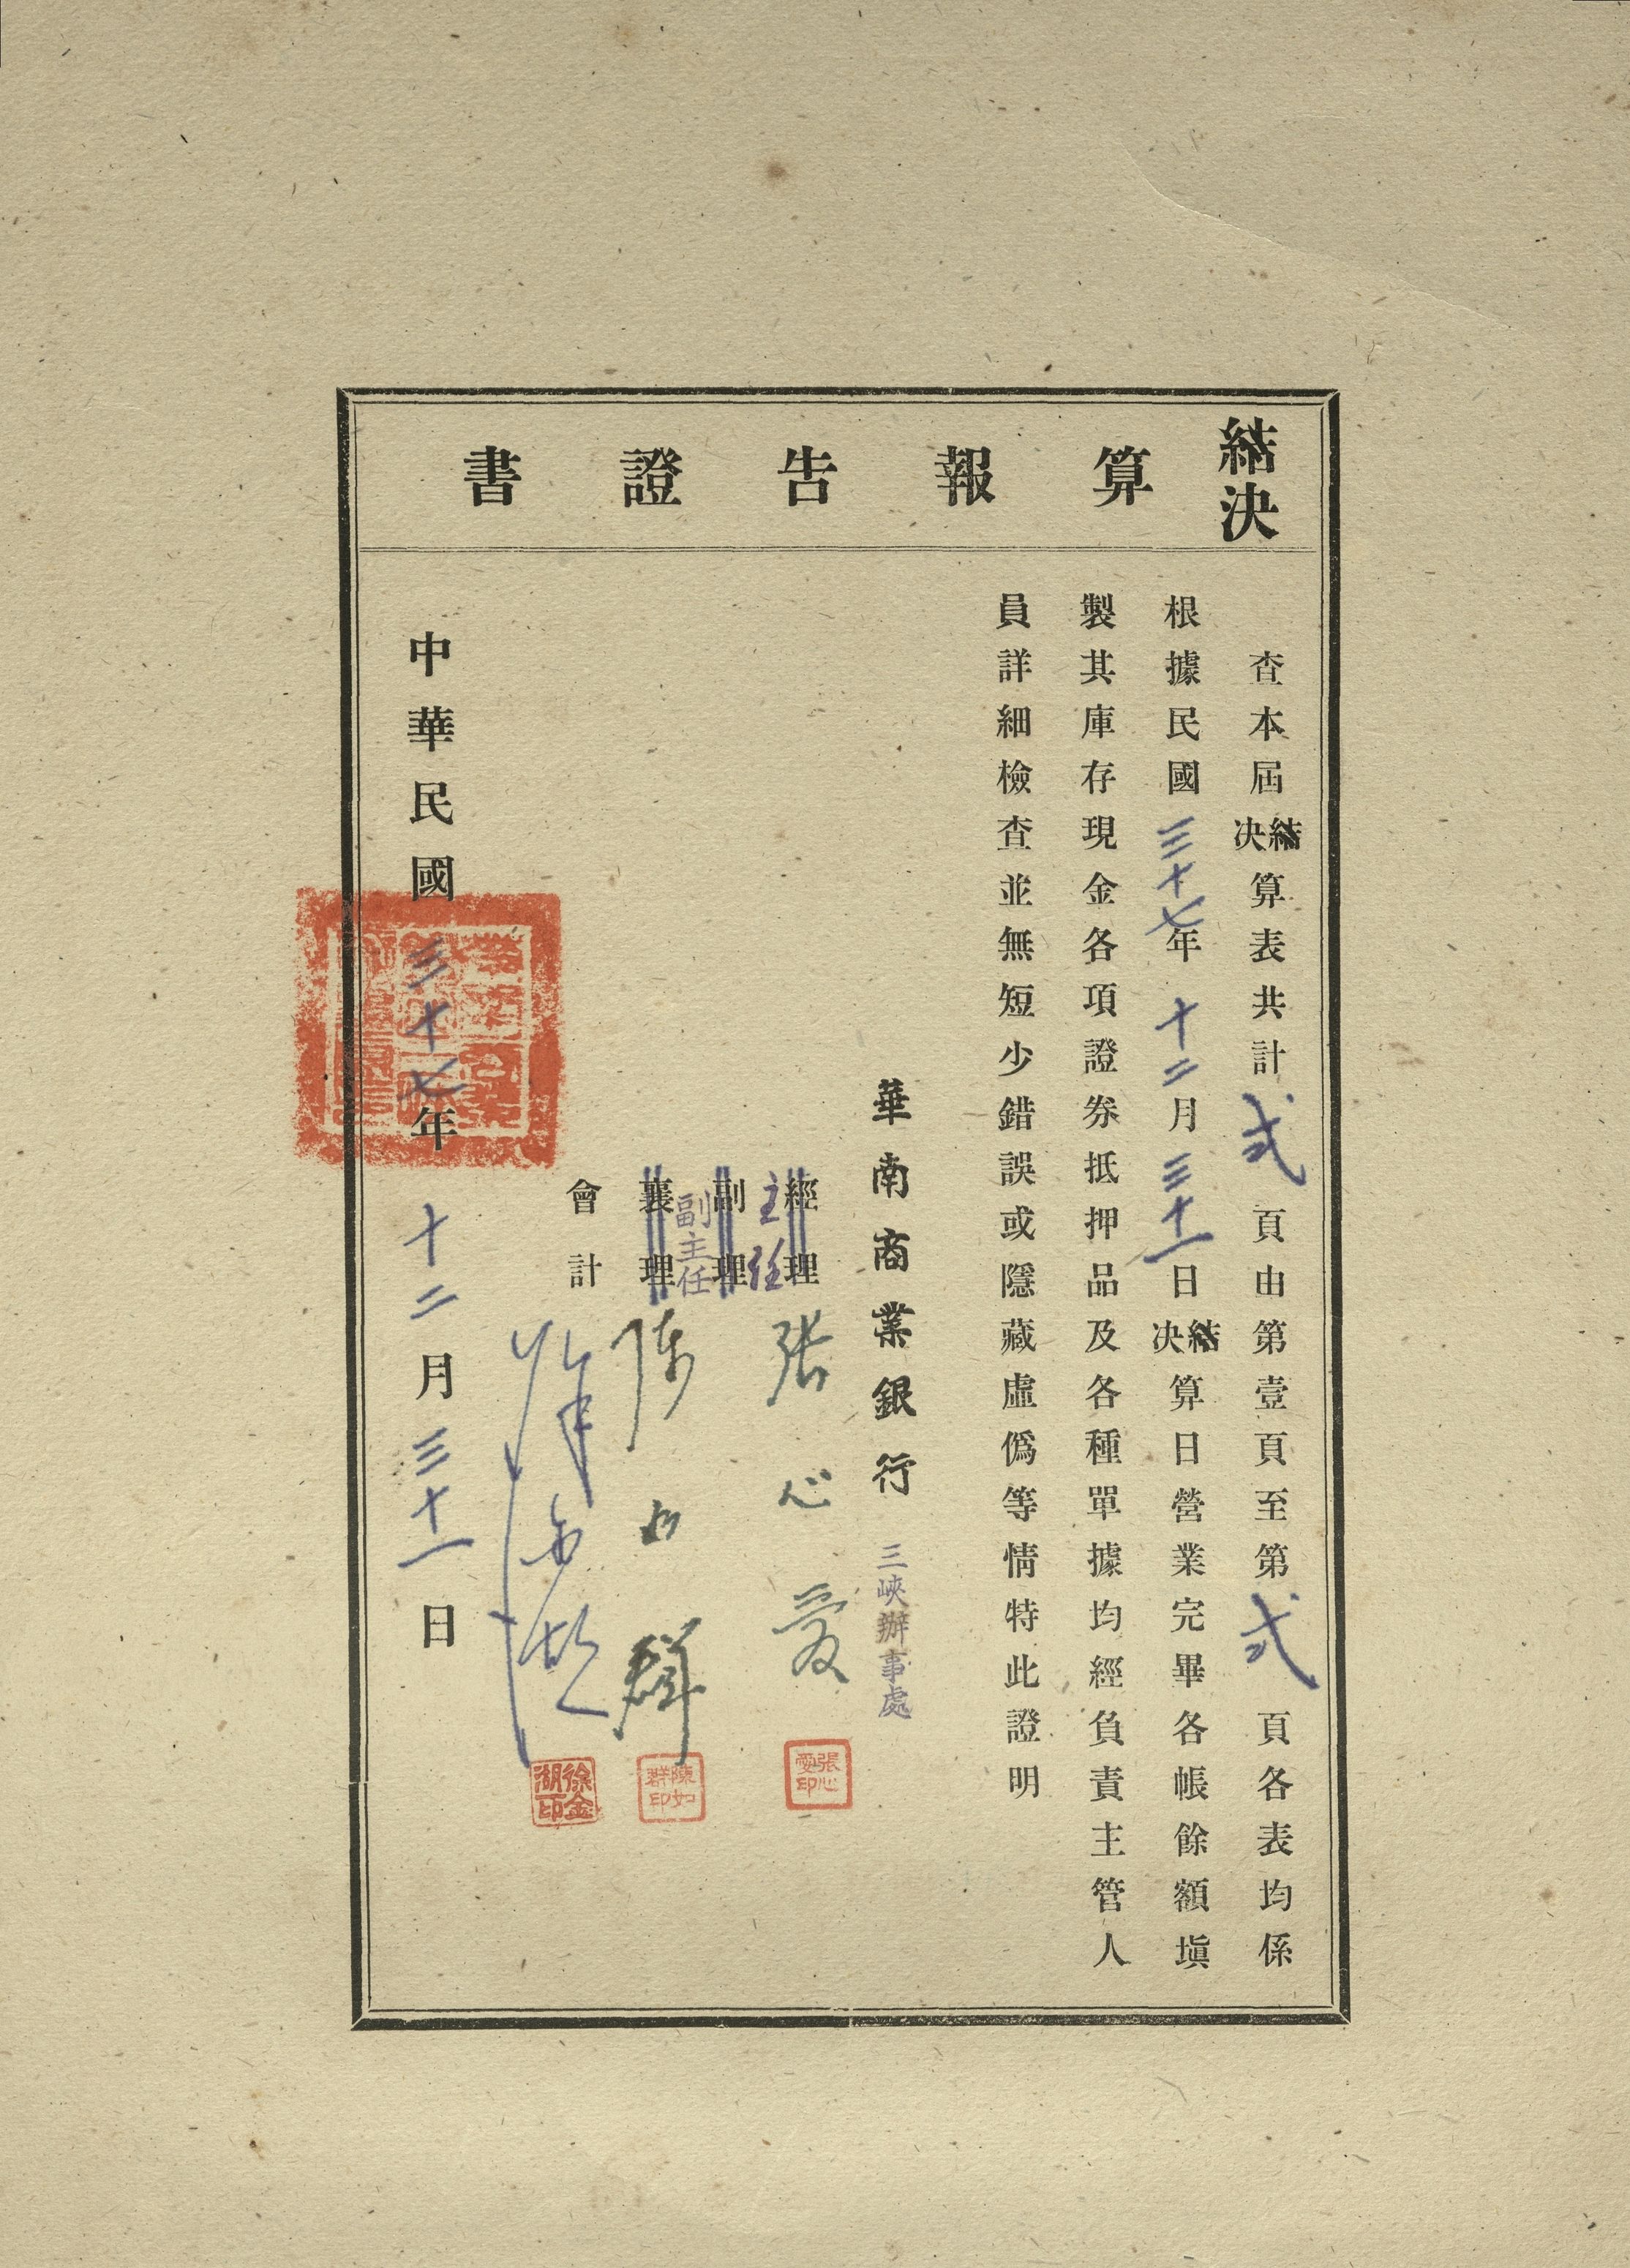 結決算報告證書
查本屆結決算表共計弍頁由第壹頁至第弍頁各表均係
根據民國三十七年十二月三十一日結決算日營業完畢各帳餘額塡
製其庫存現金各項證券抵押品及各種單據均經負責主管人
員詳細檢查並無短少錯誤或隱藏虛僞等情特此證明
華南商業銀行 三峽辦事處
經理 主任 張心愛 張心愛印
副理 副主任
襄理 陳如群 陳如群印
會計 徐金湖 徐金湖印
中華民國三十七年十二月三十一日